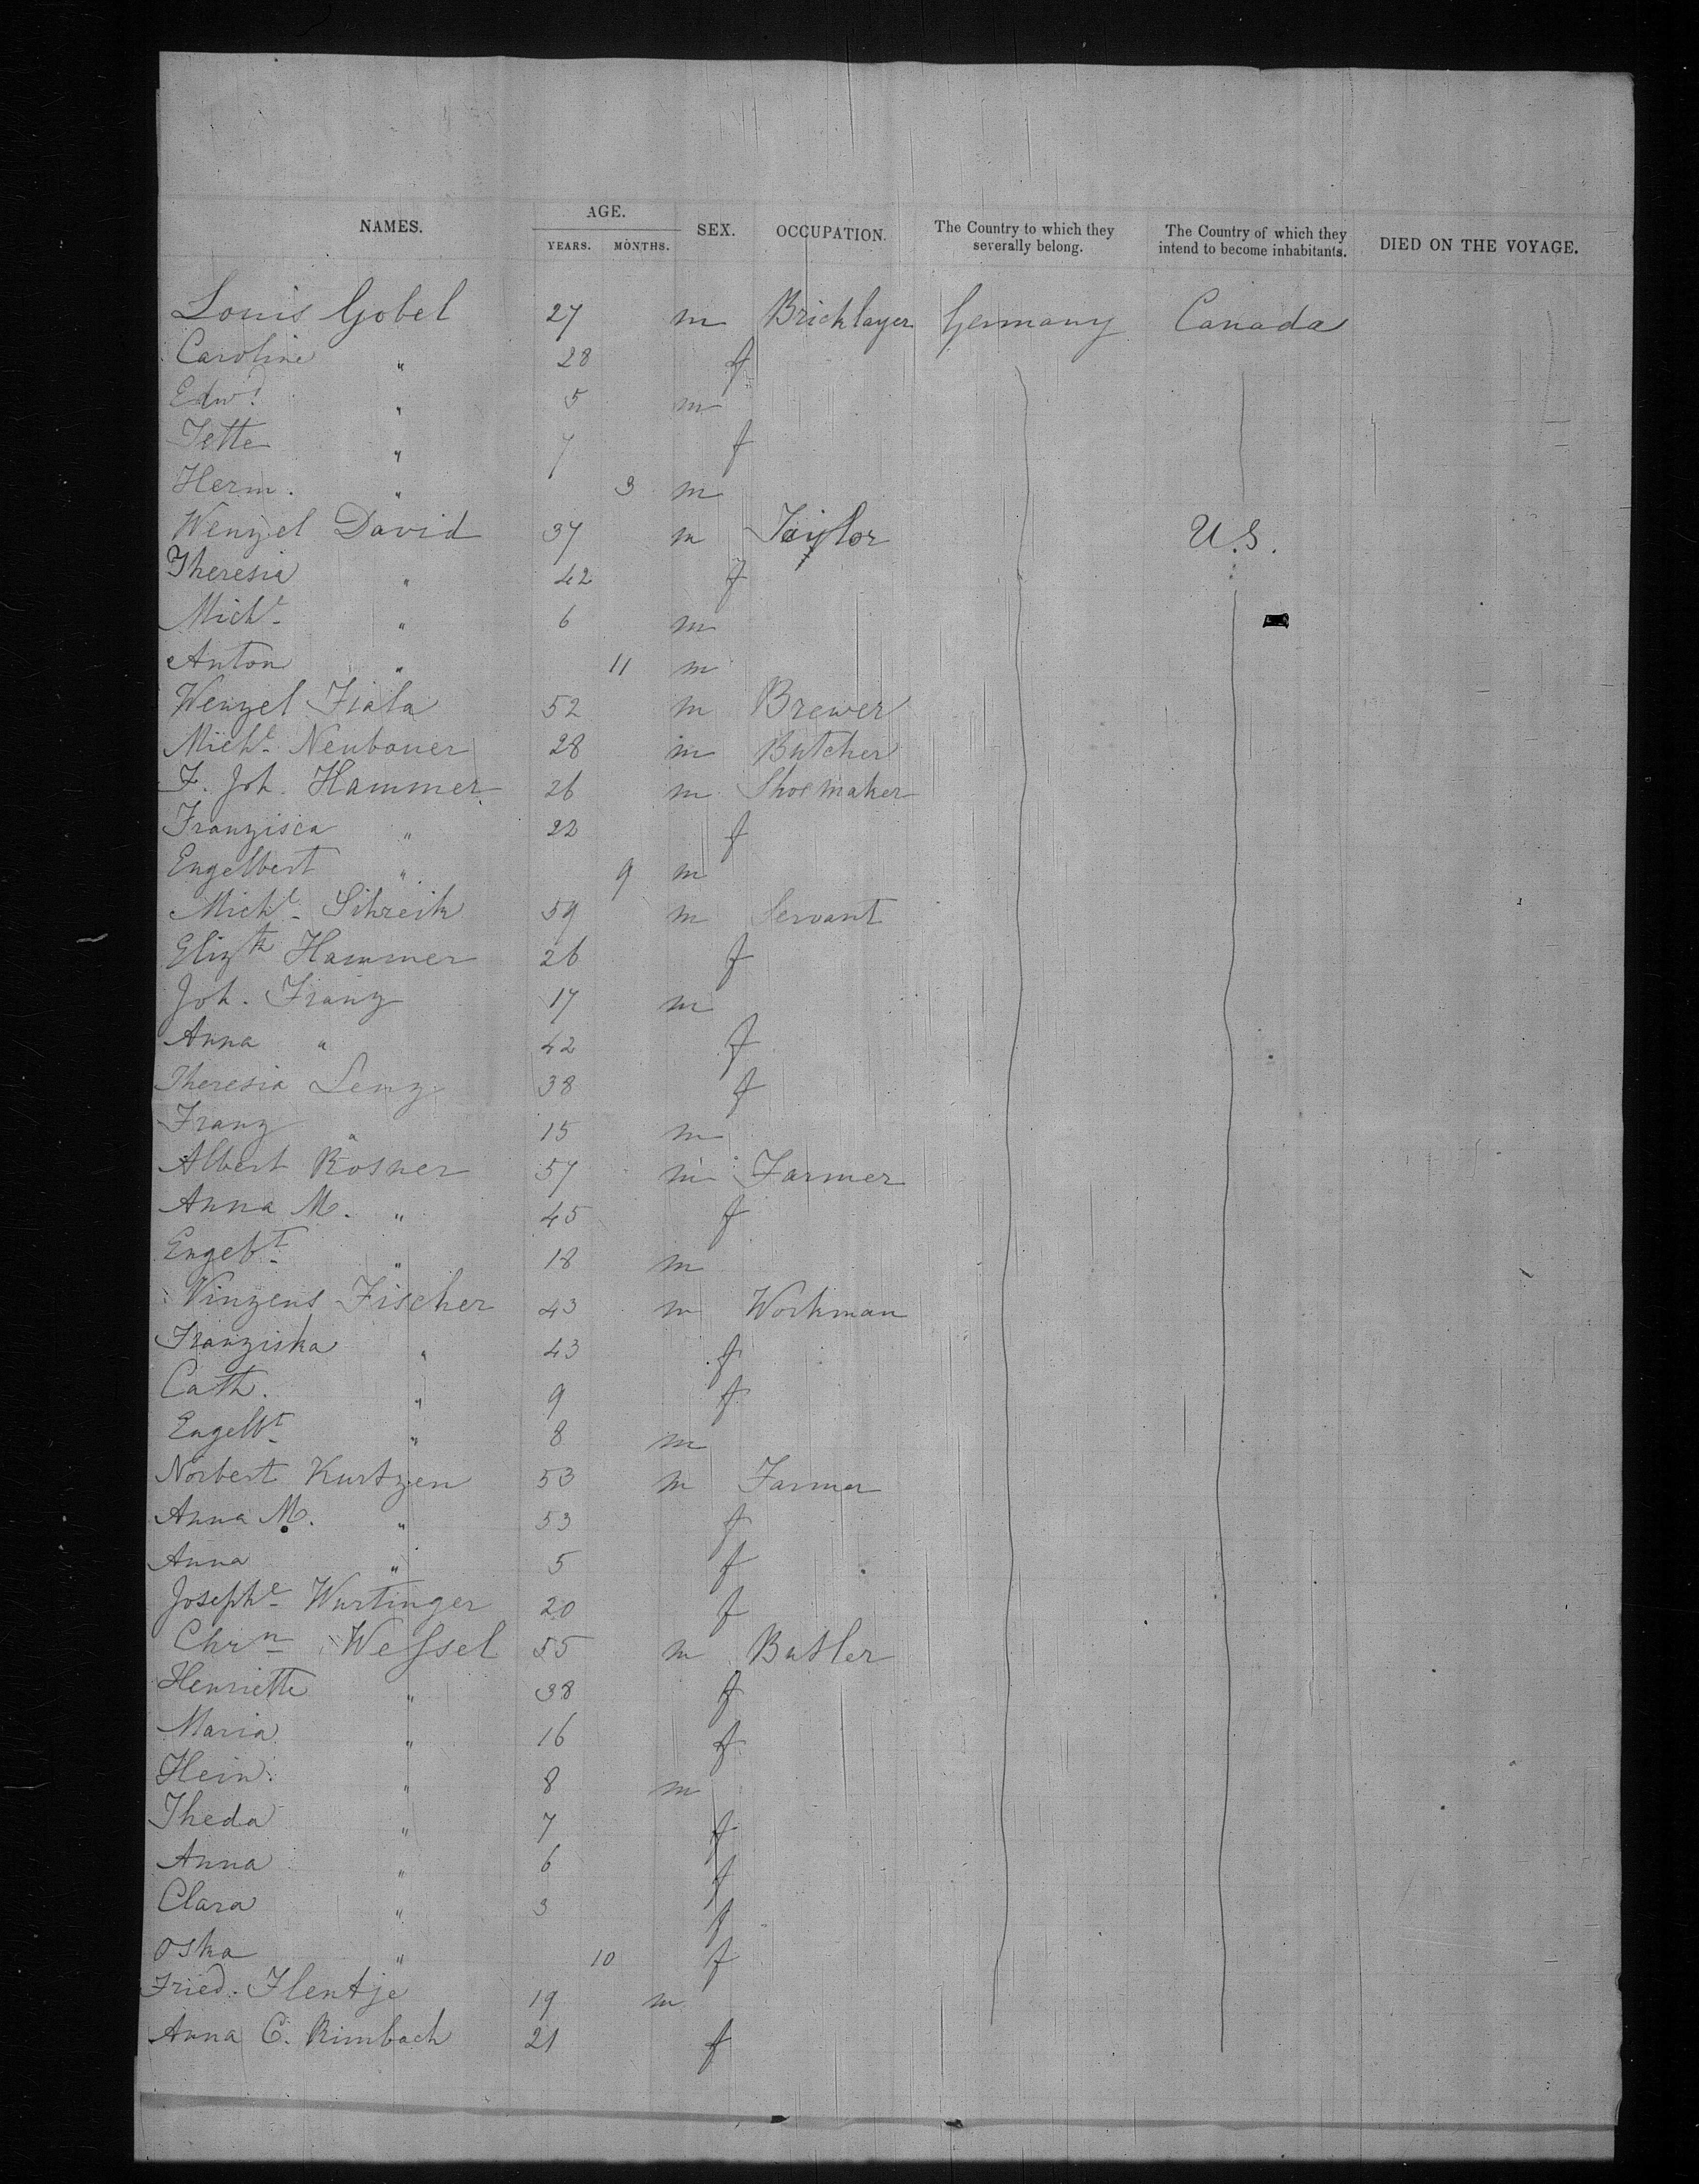 NAMES. AGE. SEX. OCCUPATION. The Country to which they severally belong. The Country of which they intend to become inhabitants. DIED ON THE VOYAGE.
YEARS. MONTHS.
Louis Gobel 27 m Bricklayer Germany Canada
Caroline " 28 f
Edwd " 5 m
Jette " 7 f
Herm. " 3 m
Wenzel David 37 m Taylor U.S.
Theresia " 42 f
Michl " 6 m
Anton " 11 m
Wenzel Fiala 52 m Brewer
Michl Neubauer 28 m Butcher
F. Joh. Hammer 26 m Shoemaker
Franzisca " 22 f
Engelbert " 9 m
Michl 59 m Servant
Elizth Hammer 26 f
Joh. Franz 17 m
Anna " 42 f
Theresia Lenz 38 f
Franz " 15 m
Albert Rosner 57 m Farmer
Anna M. " 45 f
Engebt " 18 m
Vinzens Fischer 43 m Workman
Franziska " 43 f
Cath. " 9 f
Engelbt " 8 m
Norbert Kurtzen 53 m Farmer
Anna M. " 53 f
Anna " 5 f
Josephe Wurtinger 20 f
Chrn Wessel 55 m Butler
Henriette " 38 f
Maria " 16 f
Hein. " 8 m
Theda " 7 f
Anna " 6 f
Clara " 3 f
Oska " 10 f
Fried. Flentje 19 m
Anna C. Rimbach 21 f